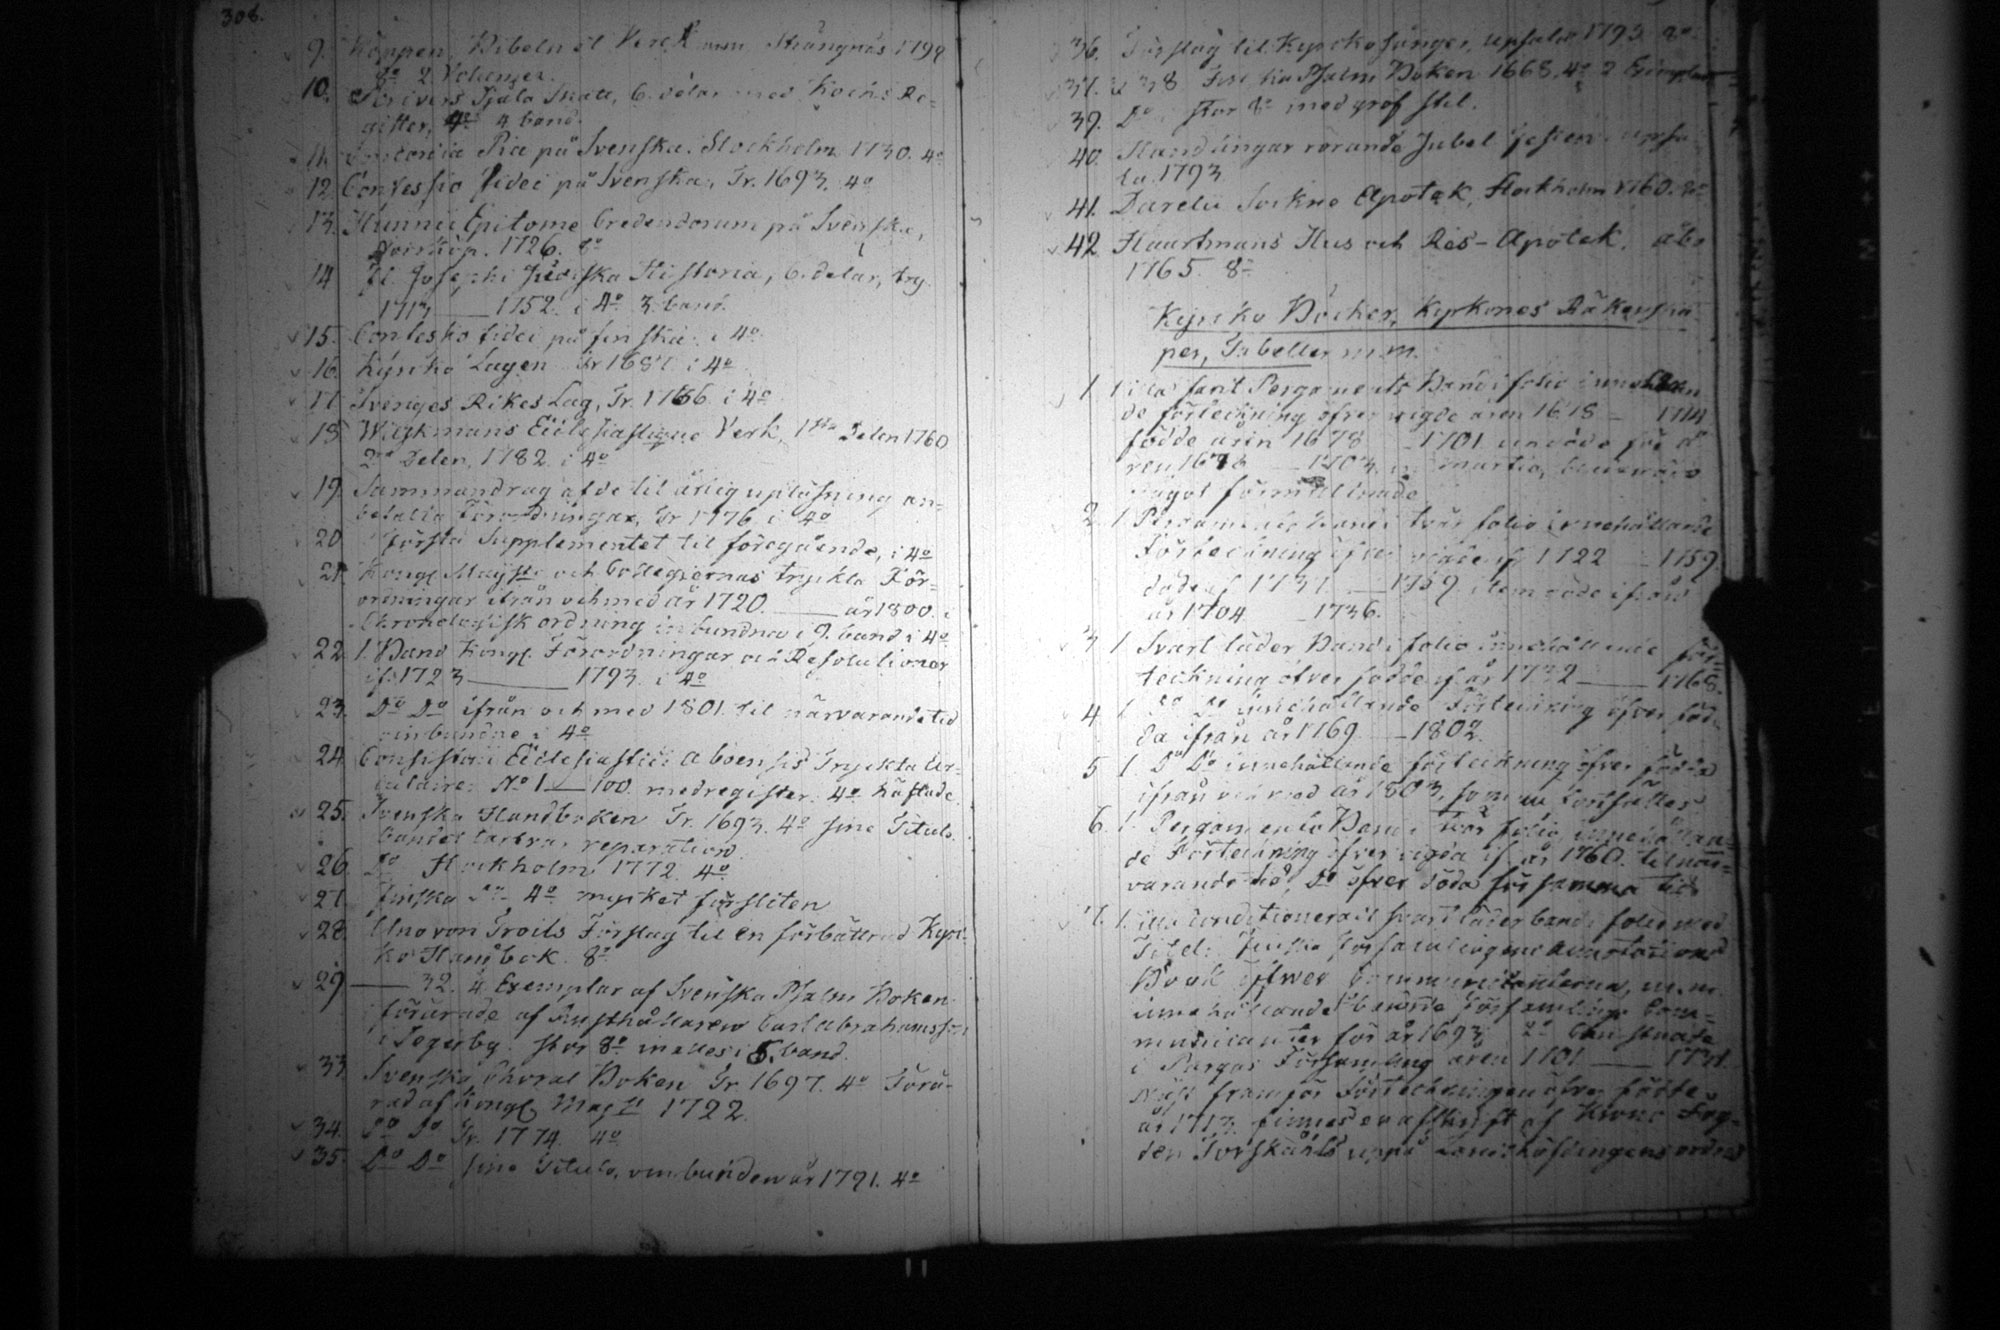 308.
9. Köppen, Bibeln et Verk mm Strängnäs 1799
8o 2 Volumer.
10. Scrivers Själa Skatt, 6. delar med Kochs Re-
gister, 4o 4 band.
11. Pia på Svenska. Stockholm 1730. 4o
12. Confessio fidei på Svenska, Tr. 1693. 4o
13. Hunnii Epitome Credendorum på Svenska,
Norrköp. 1726. 8o
14 Fl. Josephi Judiska Historia, 6. delar, try.
1713 — 1752. i 4o 3 band.
15. Confessio fidei på finska. i 4o
16. Kyrko Lagen Tr 1687. i 4o
17 Sveriges Rikes Lag, Tr. 1736. i 4o
18 Wilskmans Ecclesiastique Verk, 1sta Delen 1760
2dra Delen, 1782. i 4o
19. Sammandrag af de til årlig upläsning an-
befalta Förordningar, Tr 1776. i 4o
20. Första Supplementet til föregående, i 4o
21. Kongl. Majsts och Collegiernas tryckta För-
ordningar ifrån och med år 1720. — år 1800. i
Chronologisk ordning inbundna i 9. band i 4o
22. 1. Band Kongl. Förordningar och Resolutioner
if. 1723 — 1793. i 4o
23. Do Do ifrån och med 1801. til närvarande tid
oinbundne i 4o
24 Consistorii Ecclesiastici Aboensis Tryckta Cir-
culairer No 1 — 100. med register. 4o häftade.
25. Svenska Handboken Tr. 1693. 4o sine Titulo.
bandet tarfvar reparation
26. Do Stockholm 1772. 4o
27. finska Do 4o mycket försliten
28. Uno von Troils Förslag til en förbättrad Kyr-
ko Handbok. 8o
29 — 32. 4 Exemplar af Svenska Psalm Boken
förärade af Rusthållaren Carl Abrahamsson
i Segerby. stor 8o in alles i 5. band.
33 Svenska Choral Boken Tr. 1697. 4o Förä-
rad af Kongl. Majst 1722.
34. Do Do Tr. 1774. 4o
35. Do Do sine Titulo, oinbunden år 1791. 4o
36. Förslag til Kyrko sånger, Upsala 1793 8o
37. & 38 Psalm Boken 1668, 4o 2 Exemplar
39. Do stor 8o med grof stil.
40. Handlingar rörande Jubel festen i Upsa-
la. 1793
41. Darelii Sockne Apotek, Stockholm 1760. 8o
42 Haartmans Hus och Res-Apotek. Åbo
1765. 8o
Kyrko Böcker, Kyrkones Räkenska-
per, Tabeller m.m.
1 1 illa farit Pergaments Band i folio innehållan
de förteckning öfver vigde åren 1618 — 1714
födde åren 1678 — 1701
ren 1678 — 1703
något
2. 1 Pergaments Band i tvär folio innehållande
Förteckning öfver vigde if. 1722 — 1759
döde if. 1737. — 1759. item ifrån
år 1704 — 1736.
3 1 Svart läder Band i folio innehållande för-
teckning öfver födde if. år 1732 — 1768.
4. 1 Do Do innehållande Förteckning öfver föd-
da ifrån år 1769 — 1802.
5 1 Do Do innehållande förteckning öfver födda
ifrån och med år 1803, som nu fortsättes
6. 1. Pergaments Band i tvär folio, innehållan-
de Förteckning öfver vigda if. år 1760. til när-
varande tid, Do öfver döda för samma tid
7. 1. illa conditionerad svart läder band i folio med
Titel:
Book öffwer Communicanterna, m.m.
innehållande
municanter för år 1693. 2o
i Pargas Församling åren 1701 —
Näst framför Förteckningen öfver födde
år 1713. finnes en afskrift af
den Torskåhls uppå Landshöfdingens ordres